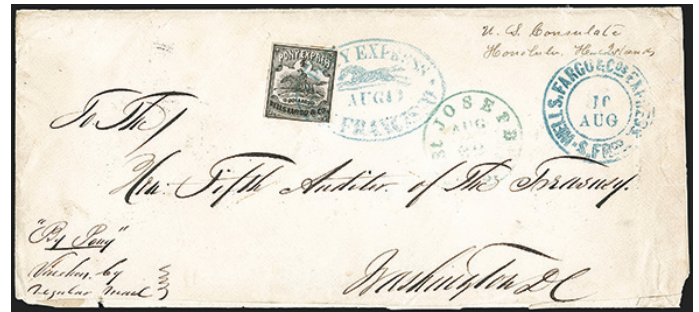 U. S. Consulate
Honolulu, Hn. Islands
PONY EXPRESS
WELLS, FARGO & CO.
Y EXPRESS
AUG 1
FRANCISCO
St JOSEPH
AUG
WELLS, FARGO & COS EXPRESS
10
AUG
S. FRCO
To The
Hon: Fifth Auditor. of The Treasury.
"By Pony"
Vouchers by
regular mail
Washington DC